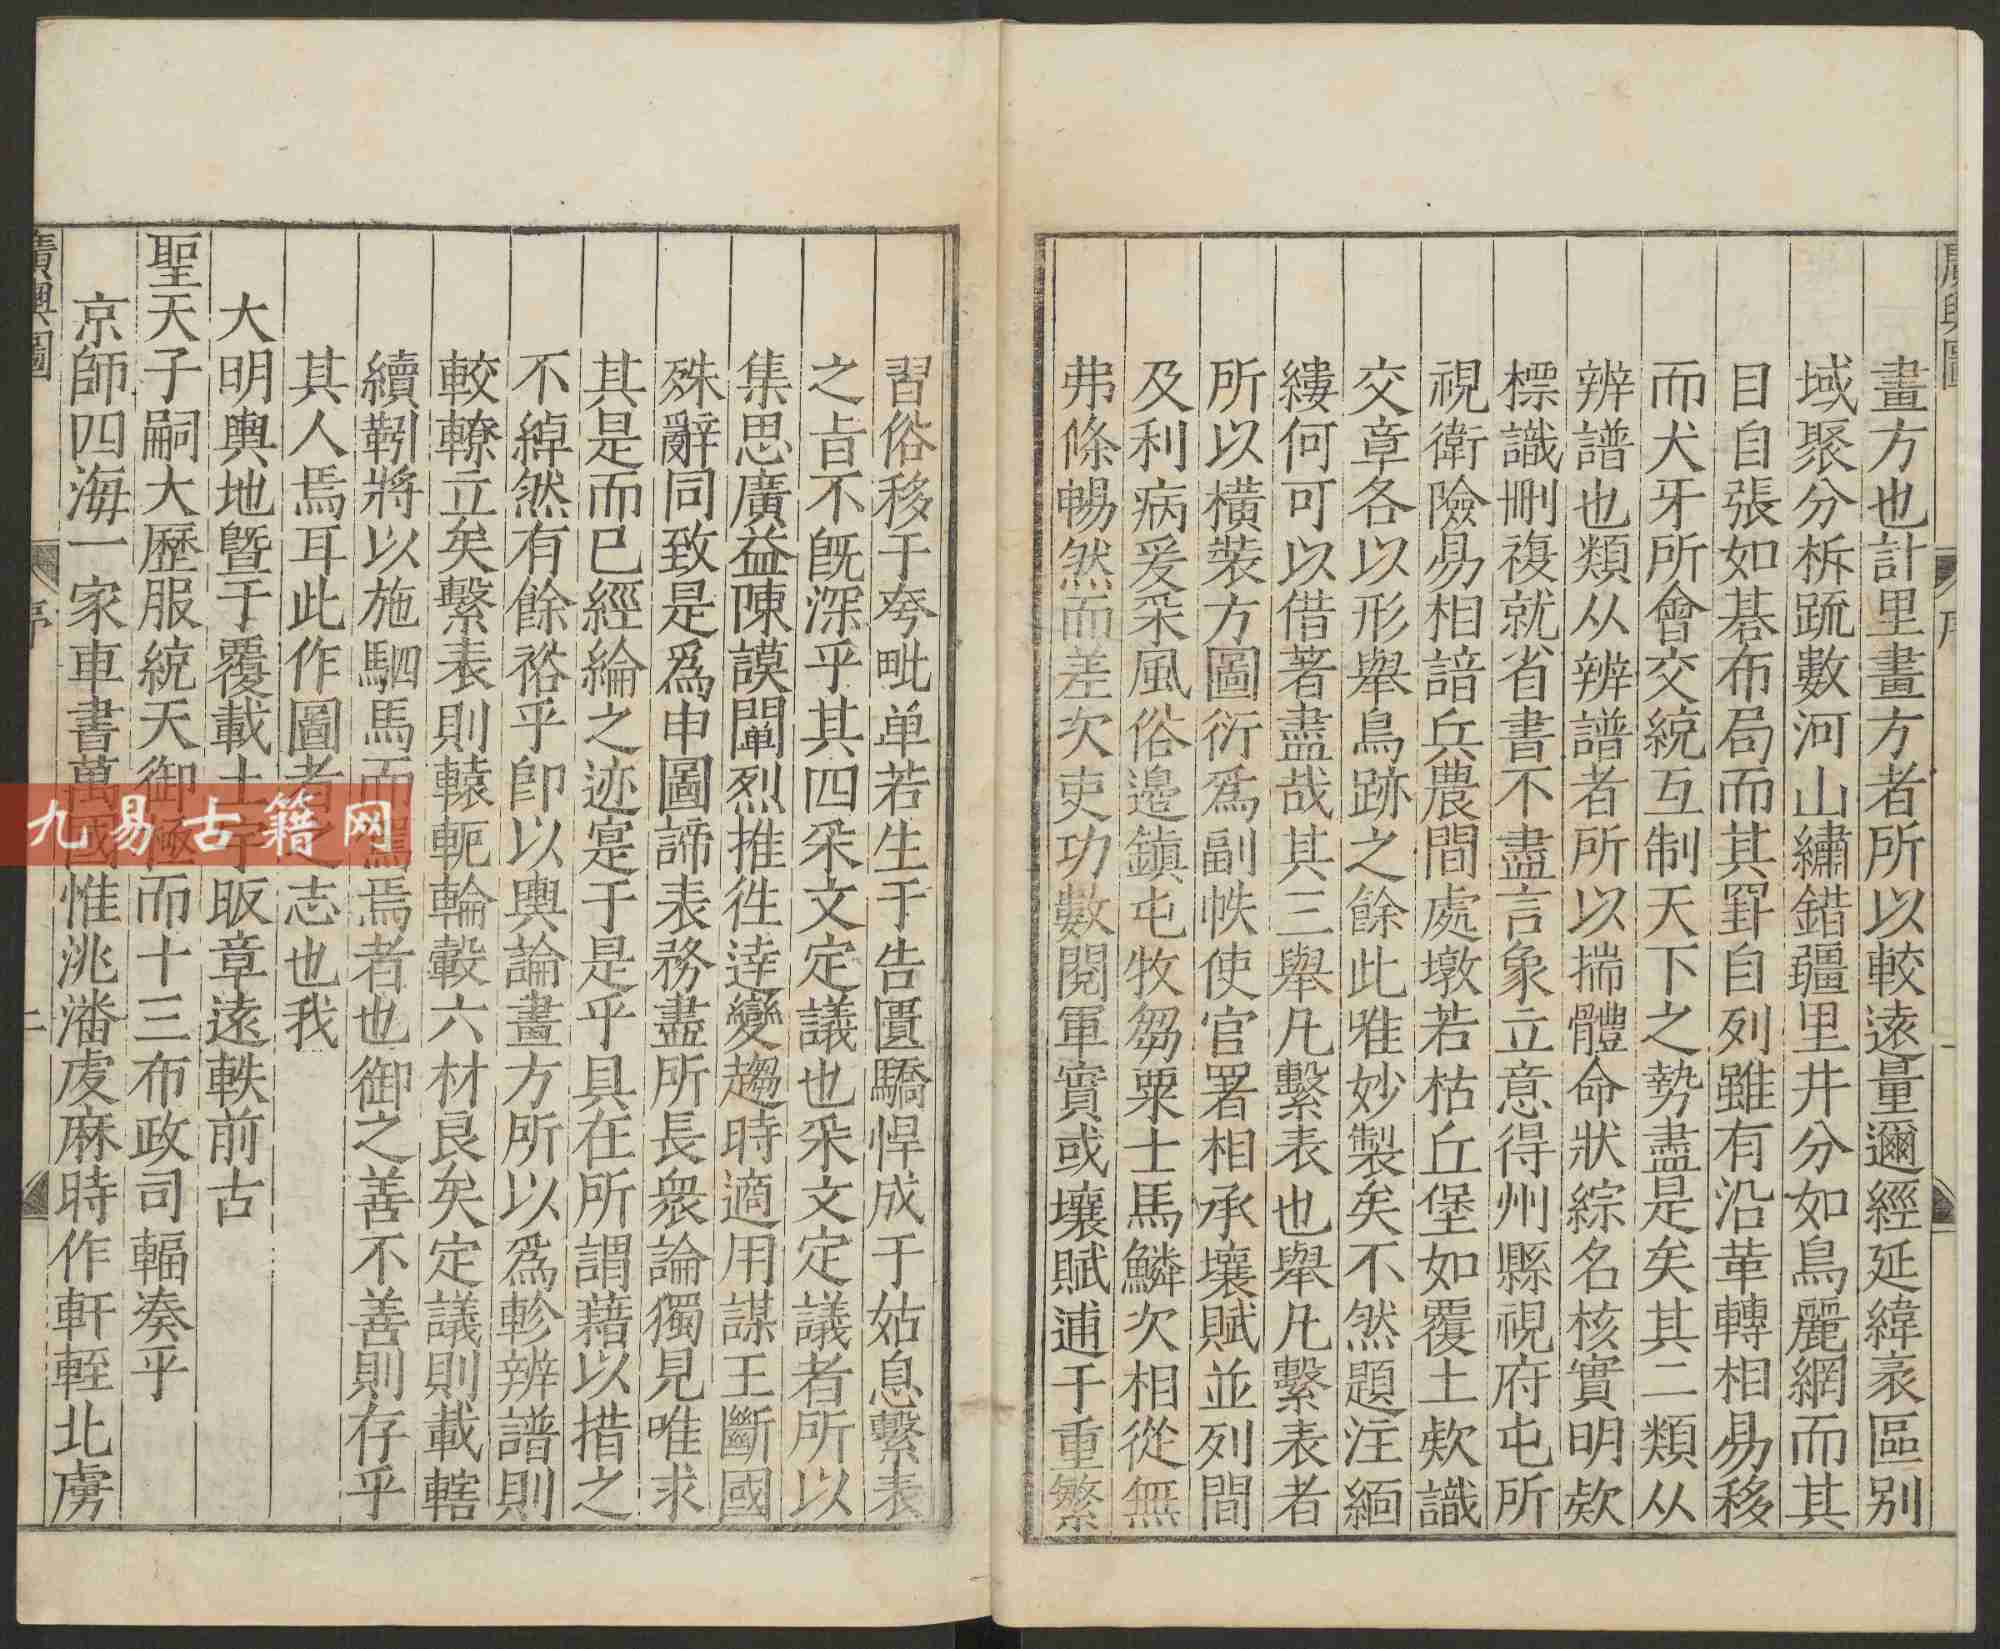 畫方也計里畫方者所以較遠量邇經延緯袤區别
域聚分柝䟽數河山繡錯疆里井分如鳥麗網而其
目自張如碁布局而其罫自列雖有沿革轉相易移
而犬牙所會交統互制天下之勢盡是矣其二類从
辨譜也類从辨譜者所以揣體命狀綜名核實明欵
標識刪複就省書不盡言象立意得州縣視府屯所
視衛險易相諳兵農間處墩若枯丘堡如覆土欵識
交章各以形舉鳥跡之餘此唯妙製矣不然題注緬
縷何可以借著盡哉其三舉凡繫表也舉凡繫表者
所以橫裝方圖衍爲副帙使官署相承壤賦並列間
及利病爰采風俗邊鎮屯牧芻粟士馬鱗次相從無
弗條暢然而差次吏功數閱軍實或壤賦逋于重繁
習俗移于夸毗单若生于告匱驕悍成于姑息繫表
之旨不旣深乎其四采文定議也采文定議者所以
集思廣益陳謨闡烈推徃達變趨時適用謀王斷國
殊辭同致是爲申圖諦表務盡所長衆論獨見唯求
其是而已經綸之迹寔于是乎具在所謂藉以措之
不綽然有餘裕乎卽以輿論畫方所以爲軫辨譜則
較轑立矣繫表則轅軛輪轂六材良矣定議則載轄
續靷將以施駟馬而駕焉者也御之善不善則存乎
其人焉耳此作圖者之志也我
大明輿地曁于覆載土宇昄章遠軼前古
聖天子嗣大歷服統天御極而十三布政司輻凑乎
京師四海一家車書萬國惟洮潘虔麻時作軒輊北虜
廣輿圖
序
二
九易古籍网